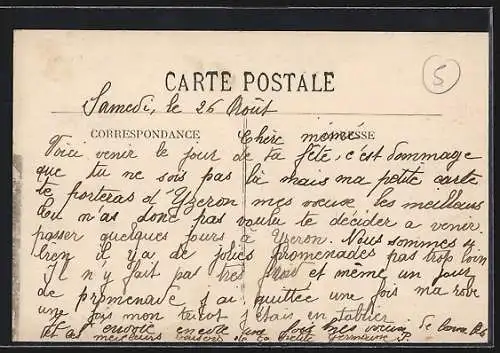 5
CARTE POSTALE
Samedi, le 26 Août
CORRESPONDANCE ADRESSE
Chère mémé
Voici venir le jour de ta fête, c'est dommage
que tu ne sois pas là mais ma petite carte
te portera d'Yzeron mes voeux les meilleurs
tu n'as donc pas voulu te décider a venir
passer quelques jours à Yzeron. Nous sommes si
bien il y a de jolies promenades pas trop loin
il n'y fait pas très froid et même un jour
de promenade j'ai quittée une fois ma robe
une fois mon tricot j'étais en tablier
encore une fois mes voeux
meilleurs baisers de ta petite Germaine